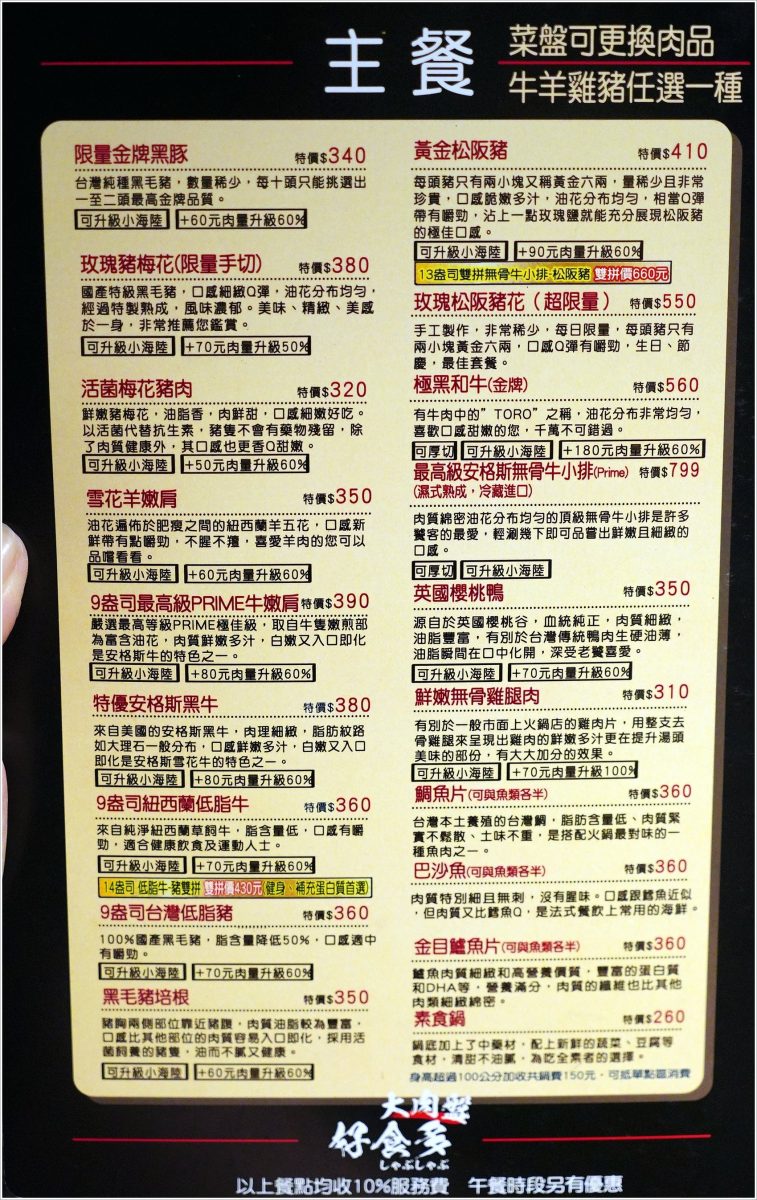 主餐
菜盤可更換肉品
牛羊雞豬任選一種
限量金牌黑豚 特價$340
台灣純種黑毛豬，數量稀少，每十頭只能挑選出
一至二頭最高金牌品質。
可升級小海陸 +60元肉量升級60%
玫瑰豬梅花(限量手切) 特價$380
國產特級黑毛豬，口感細緻Q彈，油花分布均勻，
經過特製熟成，風味濃郁。美味、精緻、美感
於一身，非常推薦您鑑賞。
可升級小海陸 +70元肉量升級50%
活菌梅花豬肉 特價$320
鮮嫩豬梅花，油脂香，肉鮮甜，口感細嫩好吃。
以活菌代替抗生素，豬隻不會有藥物殘留，除
了肉質健康外，其口感也更香Q甜嫩。
可升級小海陸 +50元肉量升級60%
雪花羊嫩肩 特價$350
油花遍佈於肥瘦之間的紐西蘭羊五花，口感新
鮮帶有點嚼勁，不腥不羶，喜愛羊肉的您可以
品嚐看看。
可升級小海陸 +60元肉量升級60%
9盎司最高級PRIME牛嫩肩 特價$390
嚴選最高等級PRIME極佳級，取自牛隻嫩煎部
為富含油花，肉質鮮嫩多汁，白嫩又入口即化
是安格斯牛的特色之一。
可升級小海陸 +80元肉量升級60%
特優安格斯黑牛 特價$380
來自美國的安格斯黑牛，肉理細緻，脂肪紋路
如大理石一般分布，口感鮮嫩多汁，白嫩又入口
即化是安格斯雪花牛的特色之一。
可升級小海陸 +80元肉量升級60%
9盎司紐西蘭低脂牛 特價$360
來自純淨紐西蘭草飼牛，脂含量低，口感有嚼
勁，適合健康飲食及運動人士。
可升級小海陸 +70元肉量升級60%
14盎司 低脂牛-豬雙拼 雙拼價430元(健身、補充蛋白質首選)
9盎司台灣低脂豬 特價$360
100%國產黑毛豬，脂含量降低50%，口感適中
有嚼勁。
可升級小海陸 +70元肉量升級60%
黑毛豬培根 特價$350
豬胸兩側部位靠近豬腹，肉質油脂較為豐富，
口感比其他部位的肉質容易入口即化，採用活
菌飼養的豬隻，油而不膩又健康。
可升級小海陸 +60元肉量升級60%
黃金松阪豬 特價$410
每頭豬只有兩小塊又稱黃金六兩，量稀少且非常
珍貴，口感脆嫩多汁，油花分布均勻，相當Q彈
帶有嚼勁，沾上一點玫瑰鹽就能充分展現松阪豬
的極佳口感。
可升級小海陸 +90元肉量升級60%
13盎司雙拼無骨牛小排-松阪豬 雙拼價660元
玫瑰松阪豬花（超限量） 特價$550
手工製作，非常稀少，每日限量，每頭豬只有
兩小塊黃金六兩，口感Q彈有嚼勁，生日、節
慶，最佳套餐。
極黑和牛(金牌) 特價$560
有牛肉中的”TORO”之稱，油花分布非常均勻，
喜歡口感甜嫩的您，千萬不可錯過。
可厚切 可升級小海陸 +180元肉量升級60%
最高級安格斯無骨牛小排(Prime) 特價$799
(濕式熟成，冷藏進口)
肉質綿密油花分布均勻的頂級無骨牛小排是許多
饕客的最愛，輕涮幾下即可品嘗出鮮嫩且細緻的
口感。
可厚切 可升級小海陸
英國櫻桃鴨 特價$350
源自於英國櫻桃谷，血統純正，肉質細緻，
油脂豐富，有別於台灣傳統鴨肉生硬油薄，
油脂瞬間在口中化開，深受老饕喜愛。
可升級小海陸 +70元肉量升級60%
鮮嫩無骨雞腿肉 特價$310
有別於一般市面上火鍋店的雞肉片，用整支去
骨雞腿來呈現出雞肉的鮮嫩多汁更在提升湯頭
美味的部份，有大大加分的效果。
可升級小海陸 +70元肉量升級100%
鯛魚片(可與魚類各半) 特價$360
台灣本土養殖的台灣鯛，脂肪含量低、肉質緊
實不鬆散、土味不重，是搭配火鍋最對味的一
種魚肉之一。
巴沙魚(可與魚類各半) 特價$360
肉質特別細且無刺，沒有腥味。口感跟鱈魚近似
，但肉質又比鱈魚Q，是法式餐飲上常用的海鮮。
金目鱸魚片(可與魚類各半) 特價$360
鱸魚肉質細緻和高營養價質，豐富的蛋白質
和DHA等，營養滿分，肉質的纖維也比其他
肉類細緻綿密。
素食鍋 特價$260
鍋底加上了中藥材，配上新鮮的蔬菜、豆腐等
食材，清甜不油膩，為吃全素者的選擇。
身高超過100公分加收共鍋費150元，可抵單點區消費
大肉盤
好食多
しゃぶしゃぶ
以上餐點均收10%服務費 午餐時段另有優惠